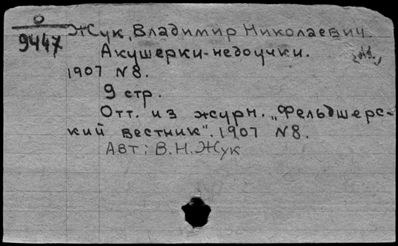 0
9447
Жук, Владимир Николаевич.
Акушерки-недоучки.
1907 N8.
9 стр.
Отт. из журн. „Фельдшерс-
кий вестник". 1907 N8.
Авт: В.Н.Жук